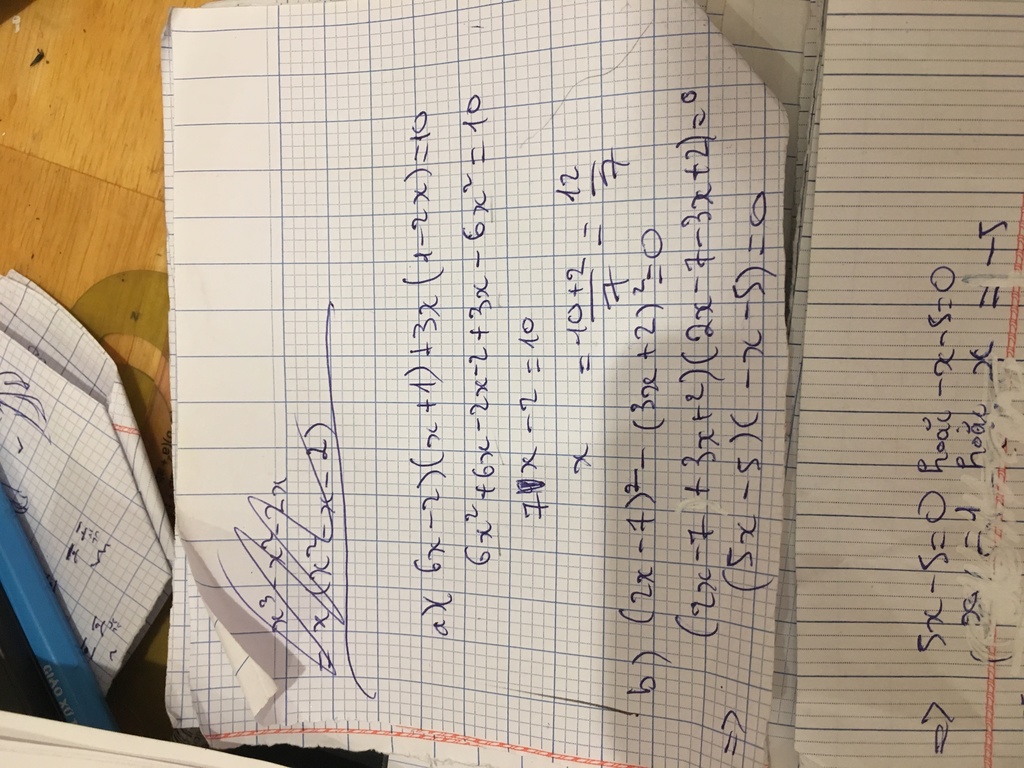 x³ - x² - 2x
= x(x²-x-2)
a) (6x-2)(x+1)+3x(1-2x)=10
6x²+6x-2x-2+3x-6x²=10
7x-2=10
x = \frac{10+2}{7} = \frac{12}{7}
b) (2x-7)²-(3x+2)²=0
(2x-7+3x+2)(2x-7-3x+2)=0
=> (5x-5)(-x-5)=0
=> 5x-5=0 hoặc -x-5=0
x=1 hoặc x=-5
GIAO